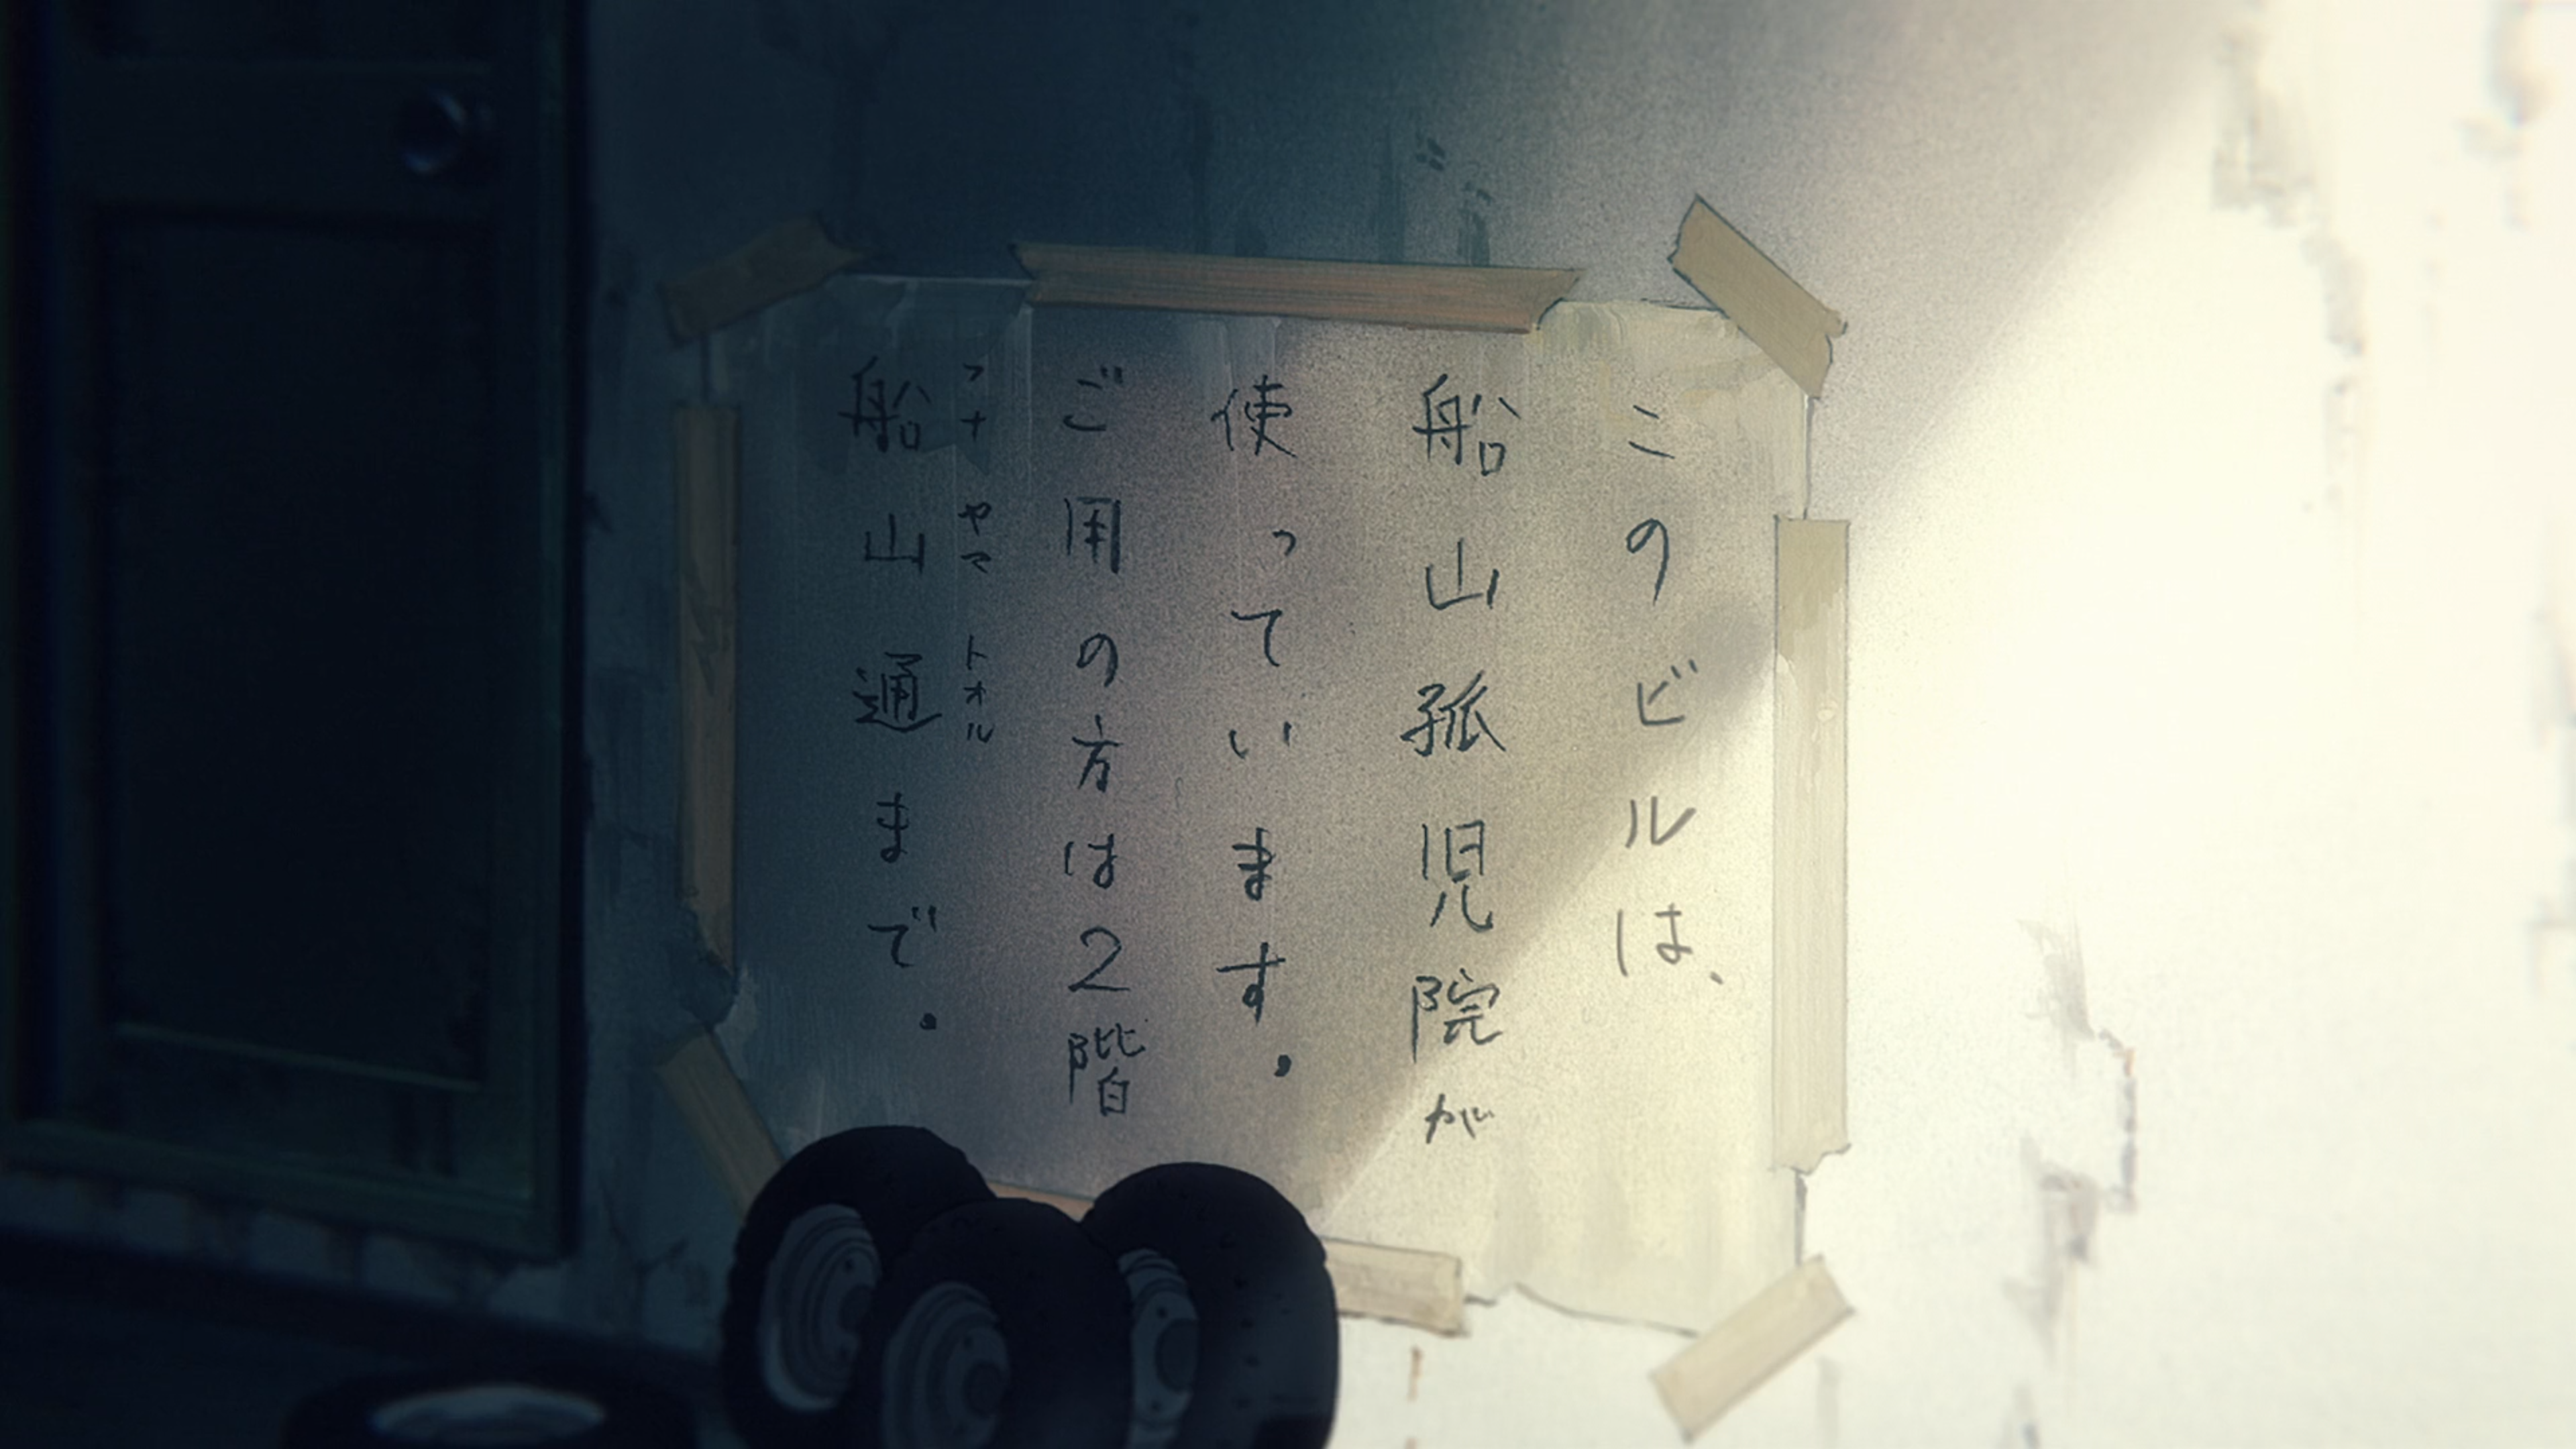 このビルは、
船山孤児院が
使っています。
ご用の方は2階
フナヤマトオル
船山通まで。